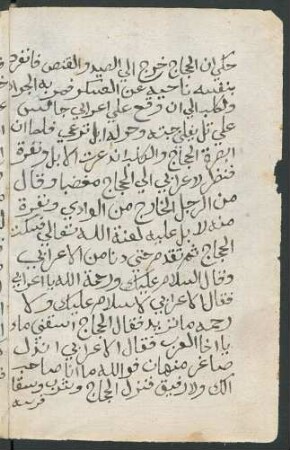 حكي ان الحجاج خرج الي الصيد والقنص فانفرد
بنفسه ناحية عن العسكر وضربه الجواد
والكلب الي ان وقع علي اعرابي جالس
علي تل يفلي جبته وحوله ابل ترعي فلما ان
ابصرة الحجاج والكلب اندعرت الابل ونفرة
فنظر الاعرابي الي الحجاج مغضبا وقال
من الرجل الخارج من الوادي ونفرة
منه الابل عليه لعنة الله تعالي فسكت
الحجاج ثم تقدم حتي دنا من الاعرابي
وقال السلام عليك ورحمة الله يا اعرابي
فقال الاعرابي لا سلام عليك ولا
رحمه ما تريد فقال الحجاج اسقني ماء
يا اخا العرب فقال الاعرابي انزل
صاغر منهان فوالله ما انا صاحب
الك ولا رفيق فنزل الحجاج وشرب وسقا
فرسه